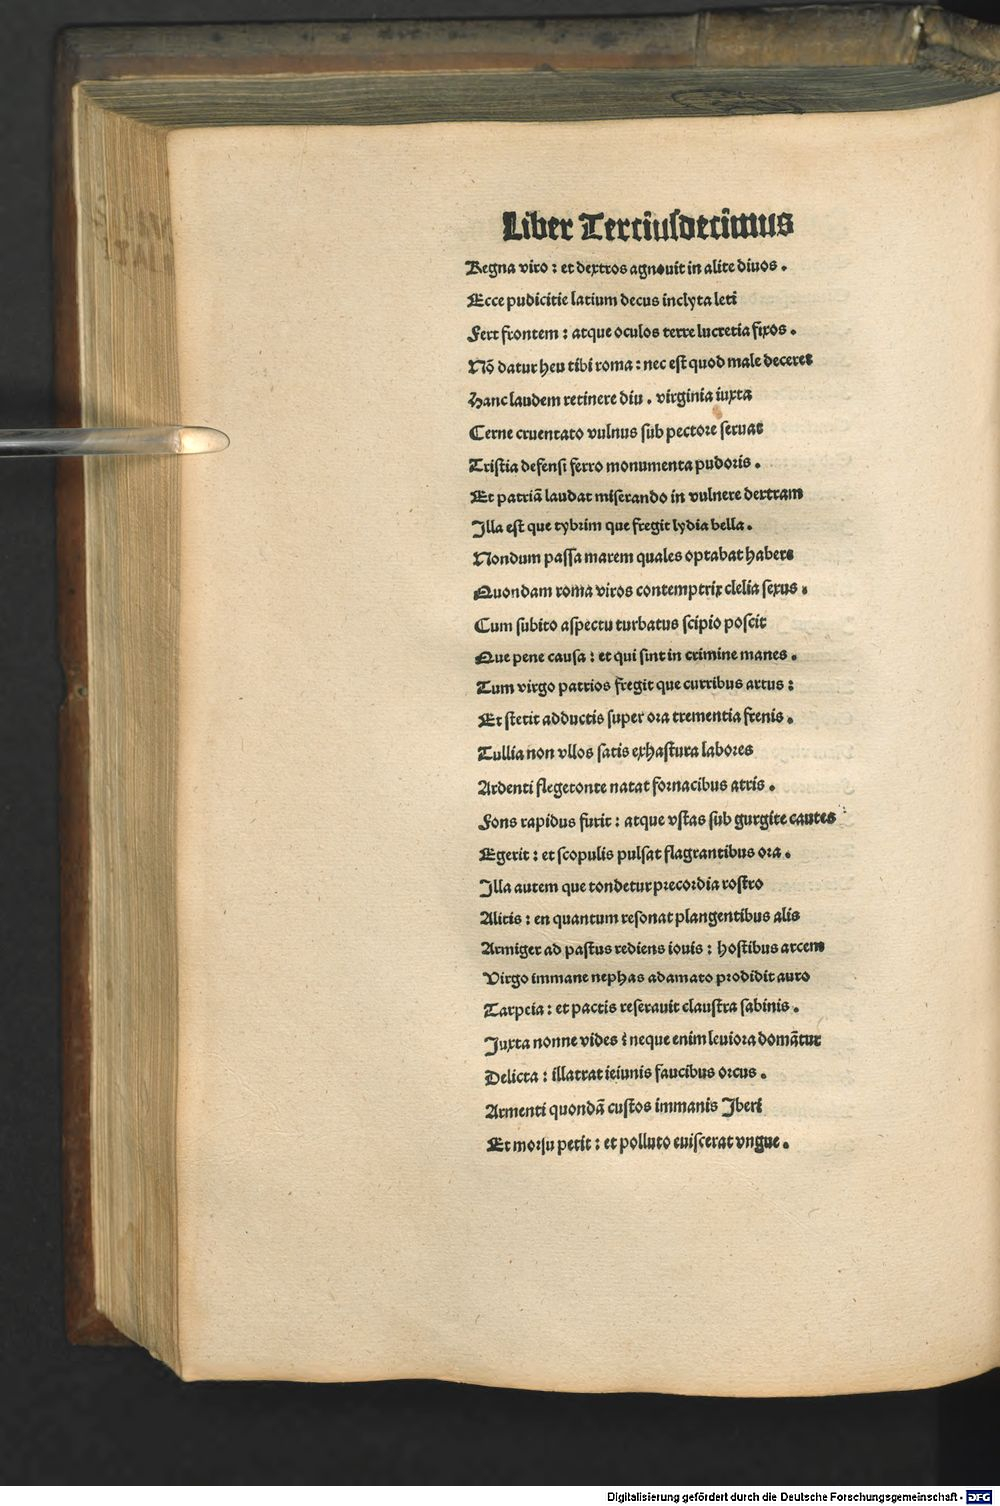 Liber Terciusdecimus
Regna viro : et dextros agnouit in alite diuos .
Ecce pudicitie latium decus inclyta leti
Fert frontem : atque oculos terre lucretia fixos .
Nō datur heu tibi roma : nec est quod male deceret
Hanc laudem retinere diu . virginia iuxta
Cerne cruentato vulnus sub pectore seruat
Tristia defensi ferro monumenta pudoris .
Et patriā laudat miserando in vulnere dextram
Illa est que tybrim que fregit lydia bella .
Nondum passa marem quales optabat habere
Quondam roma viros contemptrix clelia sexus .
Cum subito aspectu turbatus scipio poscit
Que pene causa : et qui sint in crimine manes .
Tum virgo patrios fregit que curribus artus :
Et stetit adductis super ora trementia frenis .
Tullia non vllos satis exhastura labores
Ardenti flegetonte natat fornacibus atris .
Fons rapidus furit : atque vstas sub gurgite cautes
Egerit : et scopulis pulsat flagrantibus ora .
Illa autem que tondetur precordia rostro
Alitis : en quantum resonat plangentibus alis
Armiger ad pastus rediens iouis : hostibus arcem
Virgo immane nephas adamato prodidit auro
Tarpeia : et pactis reserauit claustra sabinis .
Juxta nonne vides : neque enim leuiora domātur
Delicta : illatrat ieiunis faucibus orcus .
Armenti quondā custos immanis Iberi
Et morsu petit : et polluto euiscerat vngue .
Digitalisierung gefördert durch die Deutsche Forschungsgemeinschaft - DFG